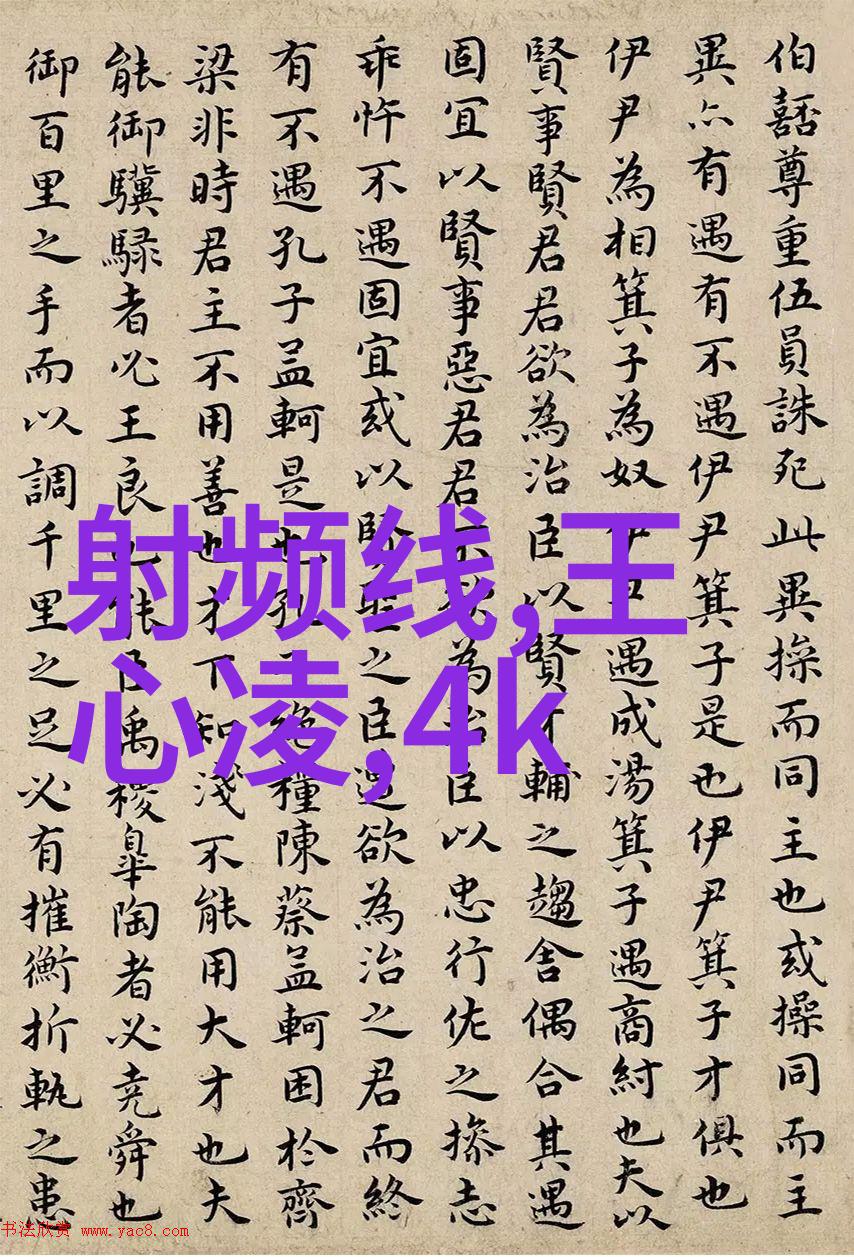 伯嚭尊重伍員誅死此異操而同主也或操同而主
異亦有遇有不遇伊尹箕子是也伊尹箕子才俱也
伊尹為相箕子為奴伊尹遇成湯箕子遇商紂也夫以
賢事賢君君欲為治臣以賢才輔之趨舍偶合其遇
固宜以賢事惡君君不欲為治臣以忠行佐之操志
乖忤不遇固宜或以賢聖之臣遭欲為治之君而終
有不遇孔子孟軻是也孔子絕糧陳蔡孟軻困於齊
梁非時君主不用善也才下知淺不能用大才也夫
能御驥騄者必王良也能臣禹稷皋陶者必堯舜也
御百里之手而以調千里之足必有摧衡折軛之患
射频线,王
心凌,4k
书法欣赏 www.yac8.com